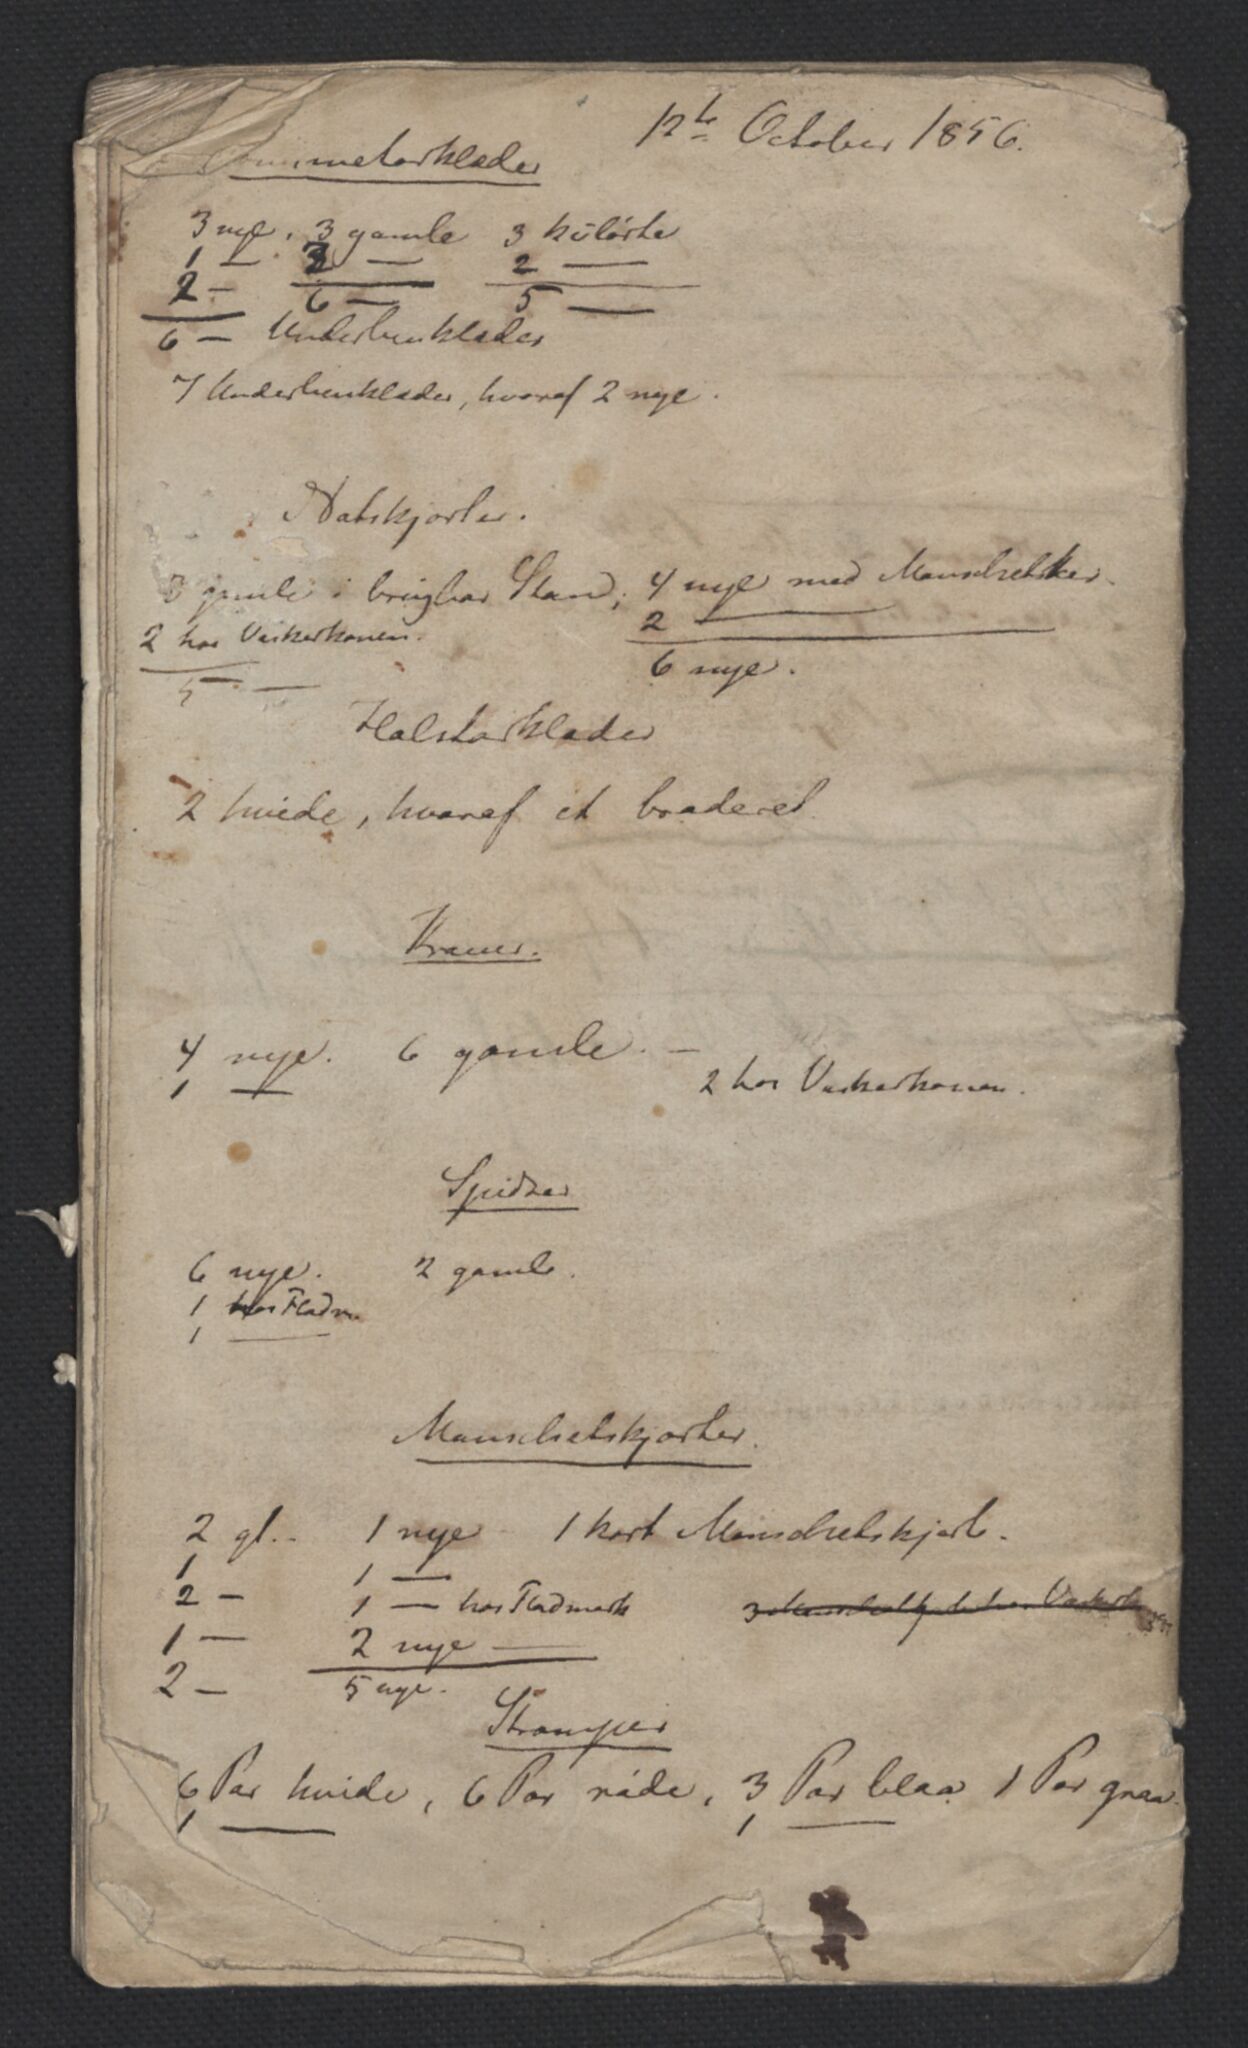 12te October 1856.
Lommetørklæder
3 nye, 3 gamle 3 kulörte
1 — 3 — 2 —
2 — 6 — 5 —
6 — Underbenklæder
7 Underbenklæder, hvoraf 2 nye.
Natskjorter.
3 gamle i brugbar Stand, 4 nye med Manschetsker.
2 hos Vaskerkonen. 2 —
5 — 6 nye.
Halstørklæder
2 hvide, hvoraf et broderet
Kraver.
4 nye. 6 gamle. —
1 — 2 hos Vaskerkonen.
Spidser
6 nye. 2 gamle.
1 hos Fladm.
1 —
Manschetskjorter.
2 gl. 1 nye 1 kort Manschetskjorte.
1 1 —
2 — 1 — hos Fladmark 3 Manschetskjorte hos Vaskerk
1 — 2 nye —
2 — 5 nye.
Strømper
6 Par hvide, 6 Par röde, 3 Par blaa 1 Par graa.
1 — 1 —